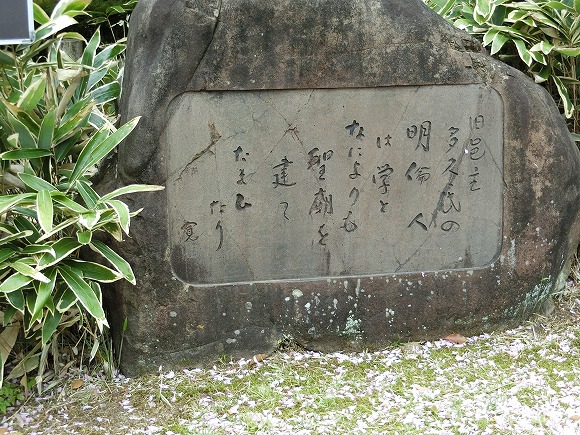 旧邑主
多久氏の
明倫人
は学と
なによりも
聖廟を
建て
たまひ
たり
寛